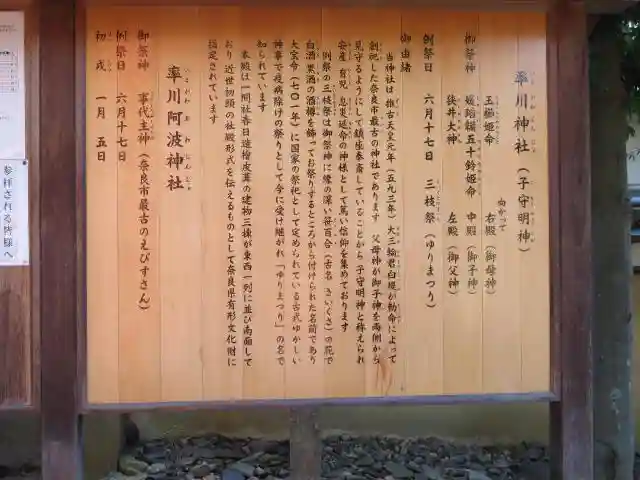 率川神社（子守明神）
いさがわじんじゃ
御祭神
向かって
玉櫛姫命 右殿（御母神）
媛蹈韛五十鈴姫命 中殿（御子神）
狭井大神 左殿（御父神）
例祭日 六月十七日 三枝祭（ゆりまつり）
御由緒
当神社は 推古天皇元年（五九三年）大三輪君白堤が勅命によって
創祀した奈良市最古の神社であります 父母神が御子神を両側から
見守るようにして鎮座奉斎していることから 子守明神と称えられ
安産 育児 息災延命の神様として篤い信仰を集めております
例祭の三枝祭は御祭神に縁の深い笹百合（古名 さいぐさ）の花で
白酒黒酒の酒樽を飾ってお祭りするところから付けられた名前であり
大宝令（七〇一年）に国家の祭祀として定められている古式ゆかしい
神事で疫病除けの祭りとして今に受け継がれ「ゆりまつり」の名で
知られています
本殿は一間社春日造檜皮葺の建物三棟が東西一列に並び南面して
おり 近世初頭の社殿形式を伝えるものとして奈良県有形文化財に
指定されています
率川阿波神社
いさがわあわじんじゃ
御祭神 事代主神（奈良市最古のえびすさん）
例祭日 六月十七日
初戎 一月 五日
参拝される皆様へ